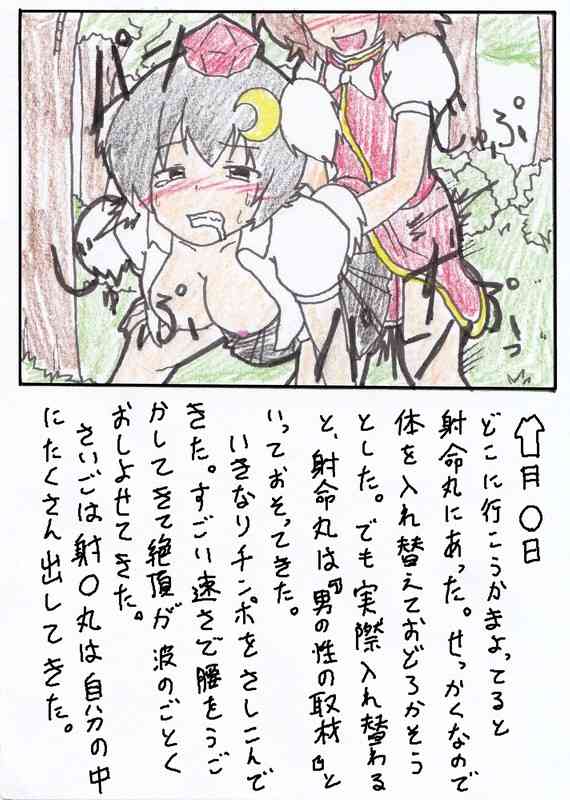 パン
じゅぷ
じゅぷ
月〇日
どこに行こうかまよってると
射命丸にあった。せっかくなので
体を入れ替えておどろかそう
とした。でも実際入れ替わる
と、射命丸は『男の性の取材』と
いっておそってきた。
いきなりチンポをさしこんで
きた。すごい速さで腰をうご
かしてきて絶頂が波のごとく
おしよせてきた。
さいごは射〇丸は自分の中
にたくさん出してきた。